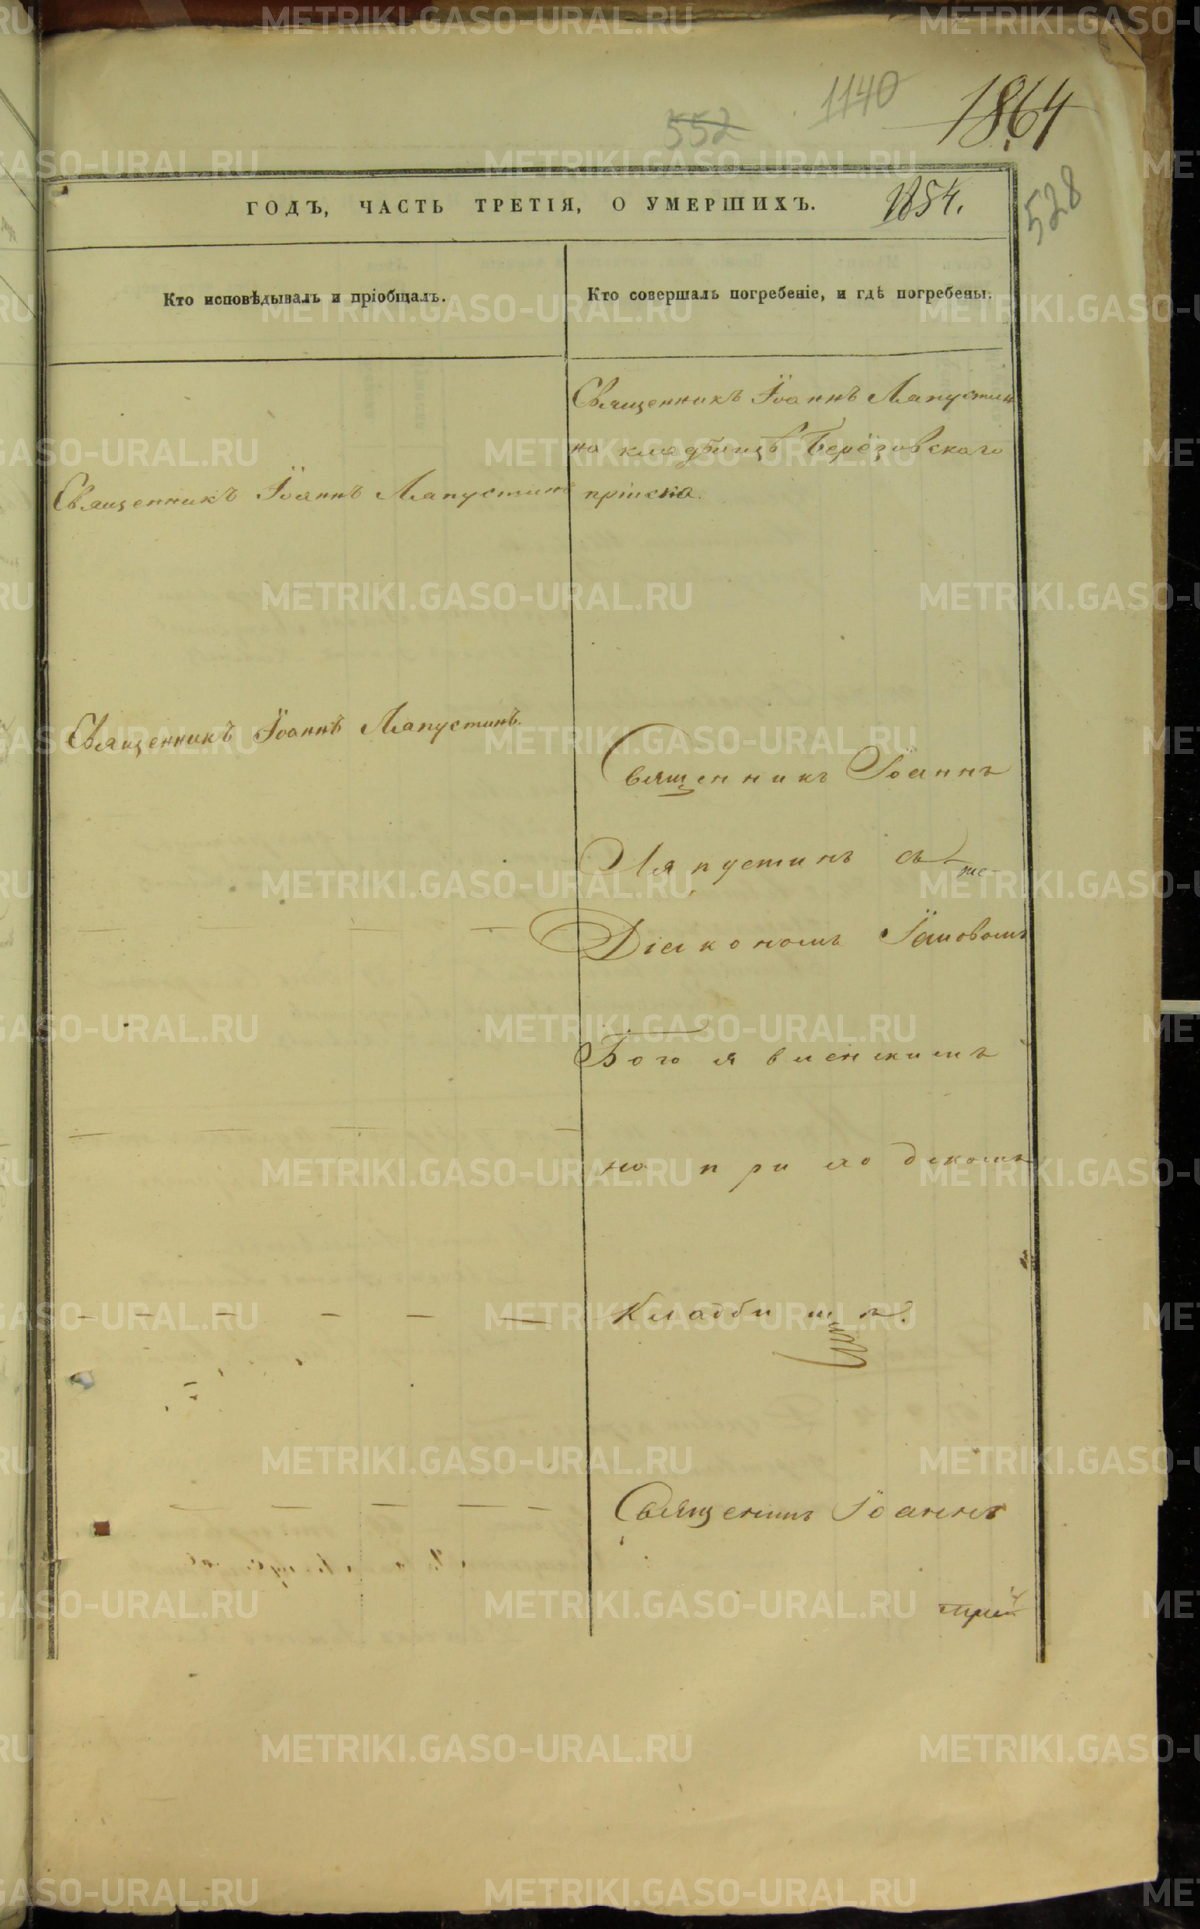 1140
552
1864
528
ГОДЪ, ЧАСТЬ ТРЕТІЯ, О УМЕРШИХЪ. 1854.
Кто исповѣдывалъ и пріобщалъ.
Кто совершалъ погребеніе, и гдѣ погребены.
Священникъ Іоаннъ Лапустин
на кладбищѣ Берёзовскаго
Священникъ Іоаннъ Лапустинъ
пріиска.
Священникъ Іоаннъ Лапустинъ.
Священникъ Іоаннъ
Ляпустинъ съ
Діакономъ
Богоявленскимъ
на приходскомъ
Кладбищѣ.
Священникъ Іоаннъ
METRIKI.GASO-URAL.RU